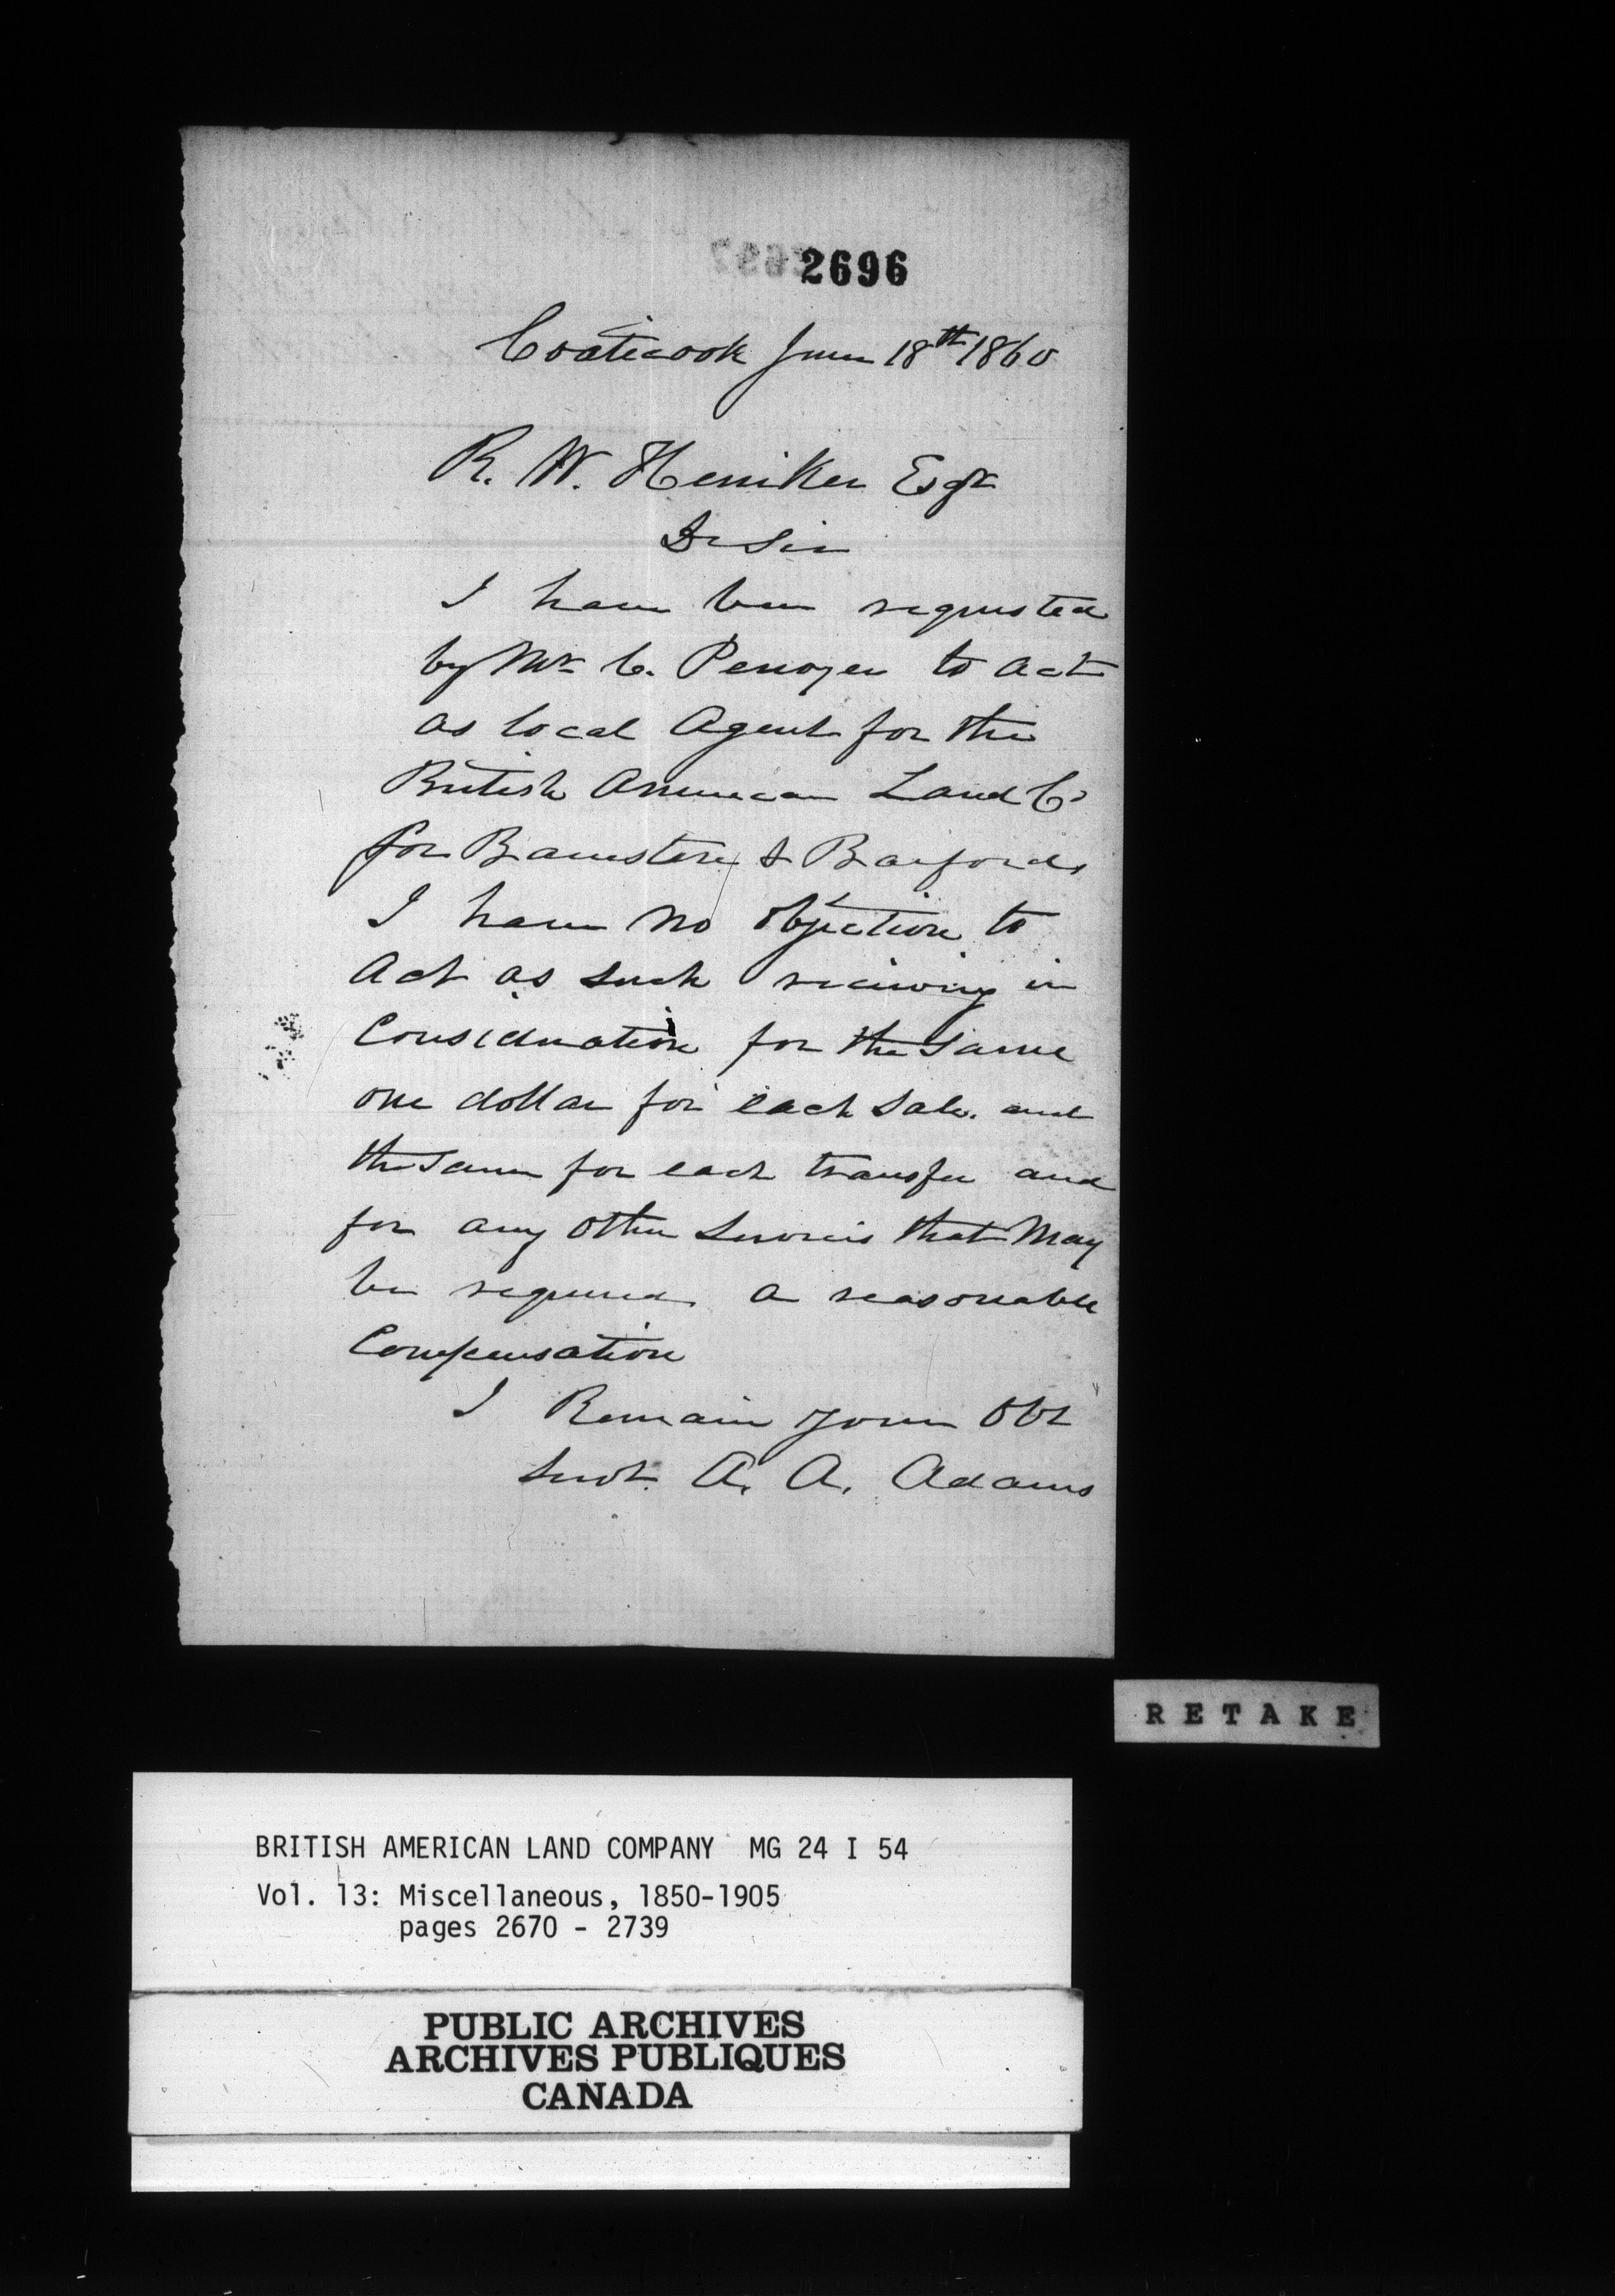 2696
Coaticook June 18th 1860
R. W. Heniker Esqr
Dr Sir
I have been requested
by Mr C. Penoyer to act
as local Agent for the
British American Land Co
for Barnston & Barford
I have no objection to
Act as such receiving in
Consideration for the same
one dollar for each sale. and
the same for each transfer and
for any other services that May
be required a reasonable
Compensation
I Remain your Obt
Servt. A. A. Adams
RETAKE
BRITISH AMERICAN LAND COMPANY MG 24 I 54
Vol. 13: Miscellaneous, 1850-1905
pages 2670 - 2739
PUBLIC ARCHIVES
ARCHIVES PUBLIQUES
CANADA